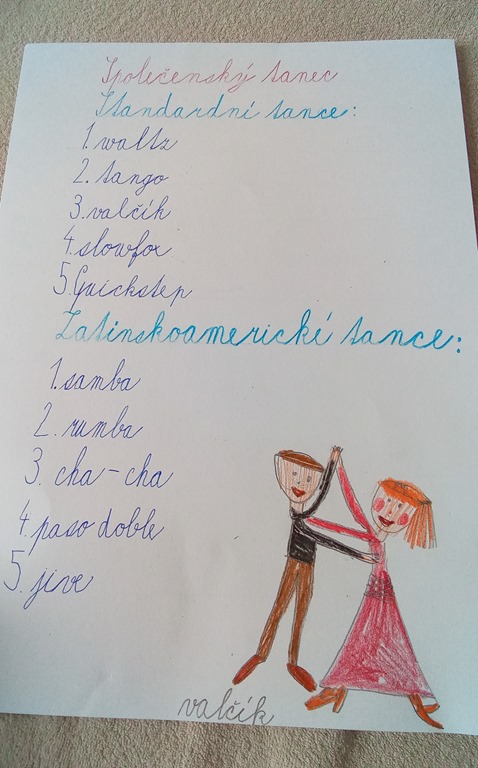 Společenský tanec
Standardní tance:
1. waltz
2. tango
3. valčík
4. slowfox
5. Quickstep
Latinskoamerické tance:
1. samba
2. rumba
3. cha-cha
4. paso doble
5. jive
valčík